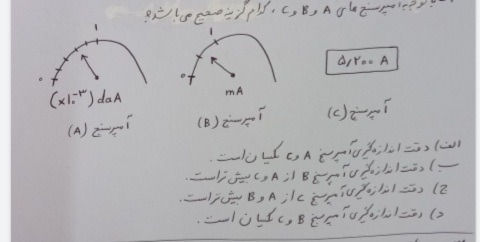 با توجه به آمپرسنج های A و B و C، کدام گزینه صحیح می باشد؟
1
0
(x10⁻³) daA
آمپرسنج (A)
1
0
mA
آمپرسنج (B)
5/200 A
آمپرسنج (C)
الف) دقت اندازه گیری آمپرسنج A و C یکسان است.
ب) دقت اندازه گیری آمپرسنج B از A و C بیش تر است.
ج) دقت اندازه گیری آمپرسنج C از A و B بیش تر است.
د) دقت اندازه گیری آمپرسنج B و C یکسان است.